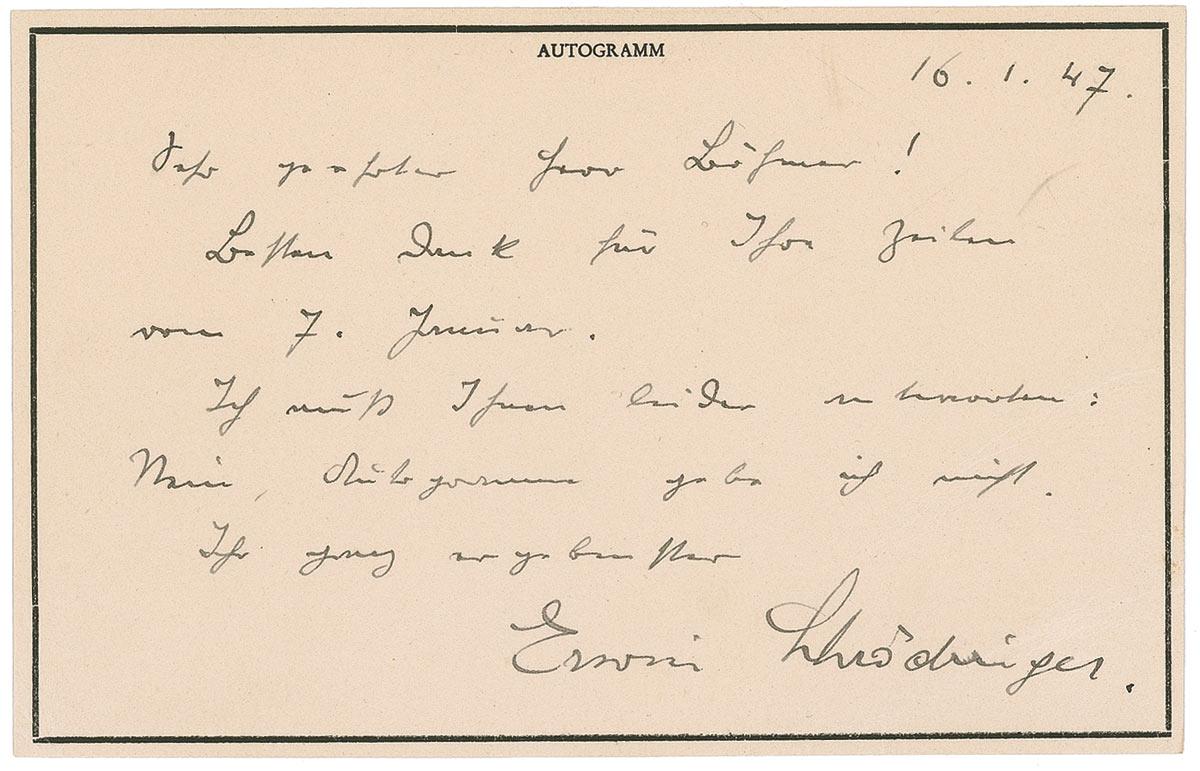 AUTOGRAMM
16. 1. 47.
Sehr geehrter Herr Böhmer!
Besten Dank für Ihre Zeilen
vom 7. Januar.
Ich muß Ihnen leider antworten:
Nein, Autogramme gebe ich nicht.
Ihr ganz ergebenster
Erwin Schrödinger.